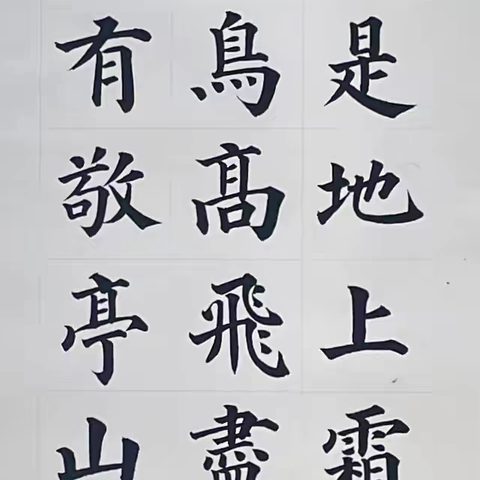 是地上霜
鳥髙飛盡
有敬亭山